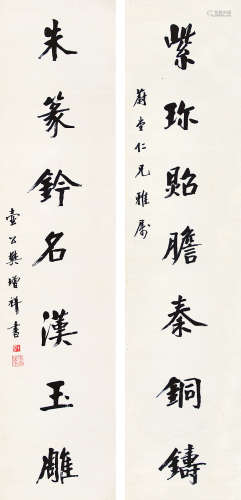 紫珎貽瞻秦銅鑄
蔚堂仁兄雅属
朱篆鈐名漢玉雕
壶公樊增祥書